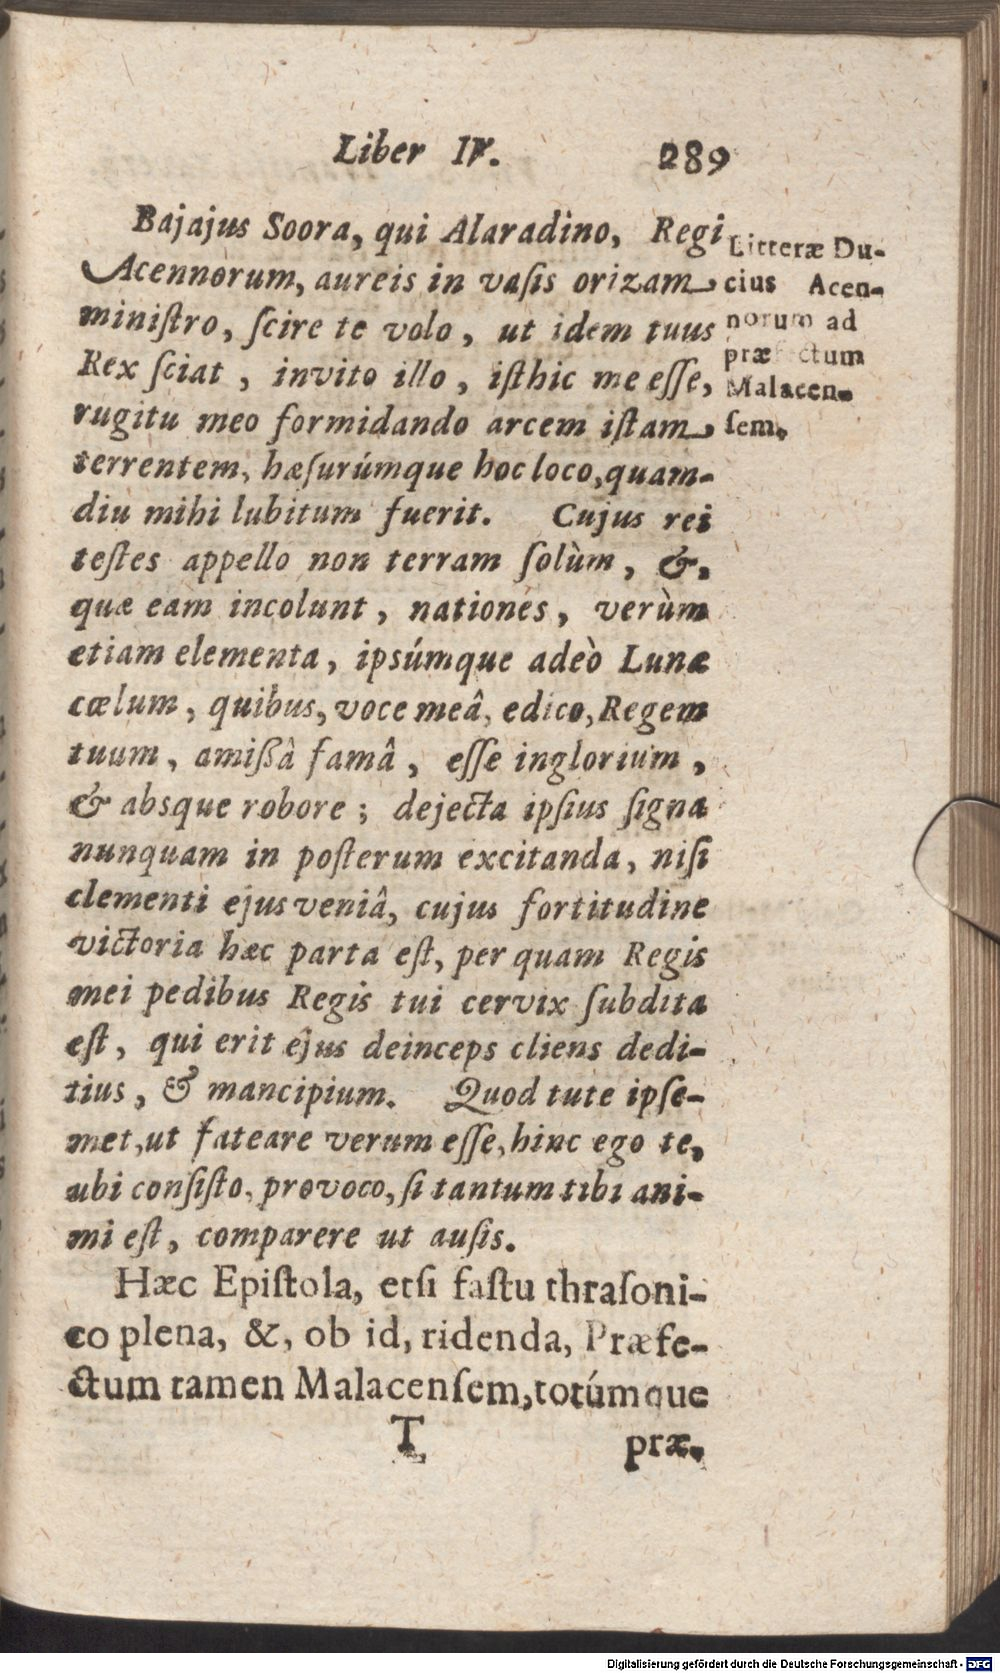 Liber IV. 289
Bajajus Soora, qui Alaradino, Regi
Acennorum, aureis in vaſis orizam
miniſtro, ſcire te volo, ut idem tuus
Rex ſciat, invito illo, iſthic me eſſe,
rugitu meo formidando arcem iſtam
terrentem, hæſurúmque hoc loco, quam-
diu mihi lubitum fuerit. Cujus rei
teſtes appello non terram ſolùm, &,
quæ eam incolunt, nationes, verùm
etiam elementa, ipsúmque adeò Lunæ
cœlum, quibus, voce meâ, edico, Regem
tuum, amißâ famâ, eſſe inglorium,
& absque robore; dejecta ipſius ſigna
nunquam in poſterum excitanda, niſi
clementi ejus veniâ, cujus fortitudine
victoria hæc parta eſt, per quam Regis
mei pedibus Regis tui cervix ſubdita
eſt, qui erit ejus deinceps cliens dedi-
tius, & mancipium. Quod tute ipſe-
met, ut fateare verum eſſe, hinc ego te,
ubi conſiſto, provoco, ſi tantum tibi ani-
mi eſt, comparere ut auſis.
Litteræ Du-
cius Acen-
norum ad
præfectum
Malacen-
ſem.
Hæc Epiſtola, etſi faſtu thraſoni-
co plena, &, ob id, ridenda, Præfe-
ctum tamen Malacenſem, totúmque
T præ-
Digitalisierung gefördert durch die Deutsche Forschungsgemeinschaft - DFG